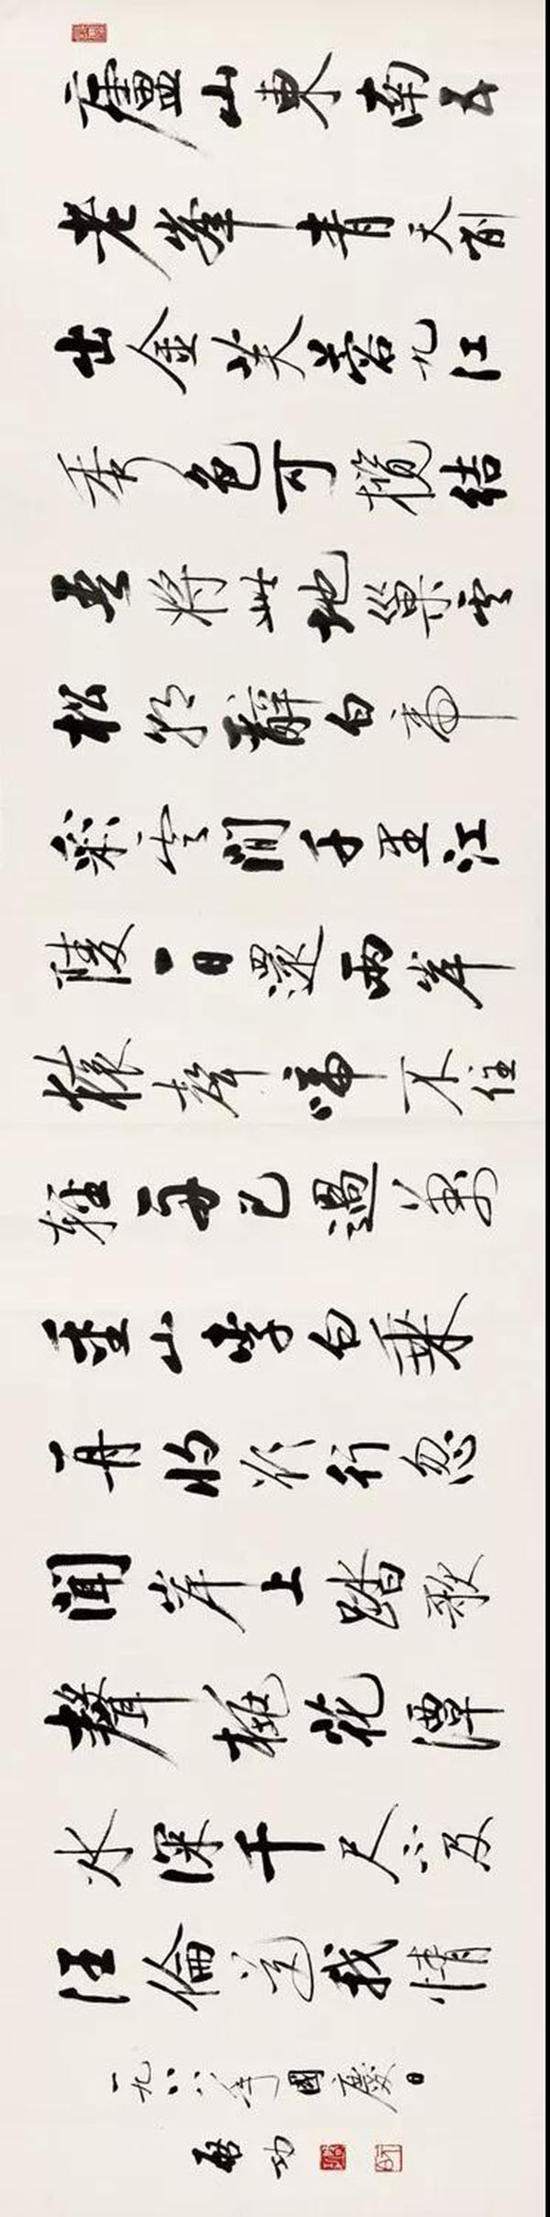 廬山東南五
老峯青天削
出金芙蓉九江
秀色可攬結
吾將此地巢云
松朝辭白帝
彩云間千里江
陵一日還兩岸
猿聲啼不住
輕舟已過萬
重山李白乘
舟將欲行忽
聞岸上踏歌
聲桃花潭
水深千尺不及
汪倫送我情
一九八八年國慶日
啟功